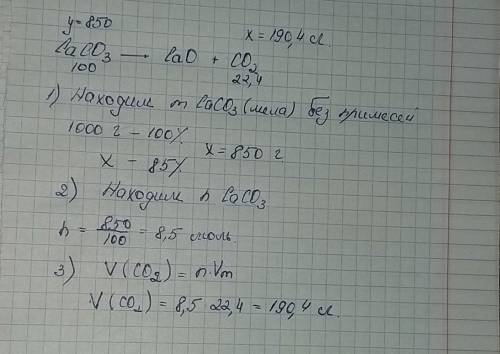 y=850
x = 190,4 л.
CaCO3 → CaO + CO2
100 22,4
1) Находим m CaCO3 (мела) без примесей
1000 г – 100%
x – 85% x = 850 г.
2) Находим n CaCO3
n = 850/100 = 8,5 моль.
3) V(CO2) = n·Vm
V(CO2) = 8,5 · 22,4 = 190,4 л.